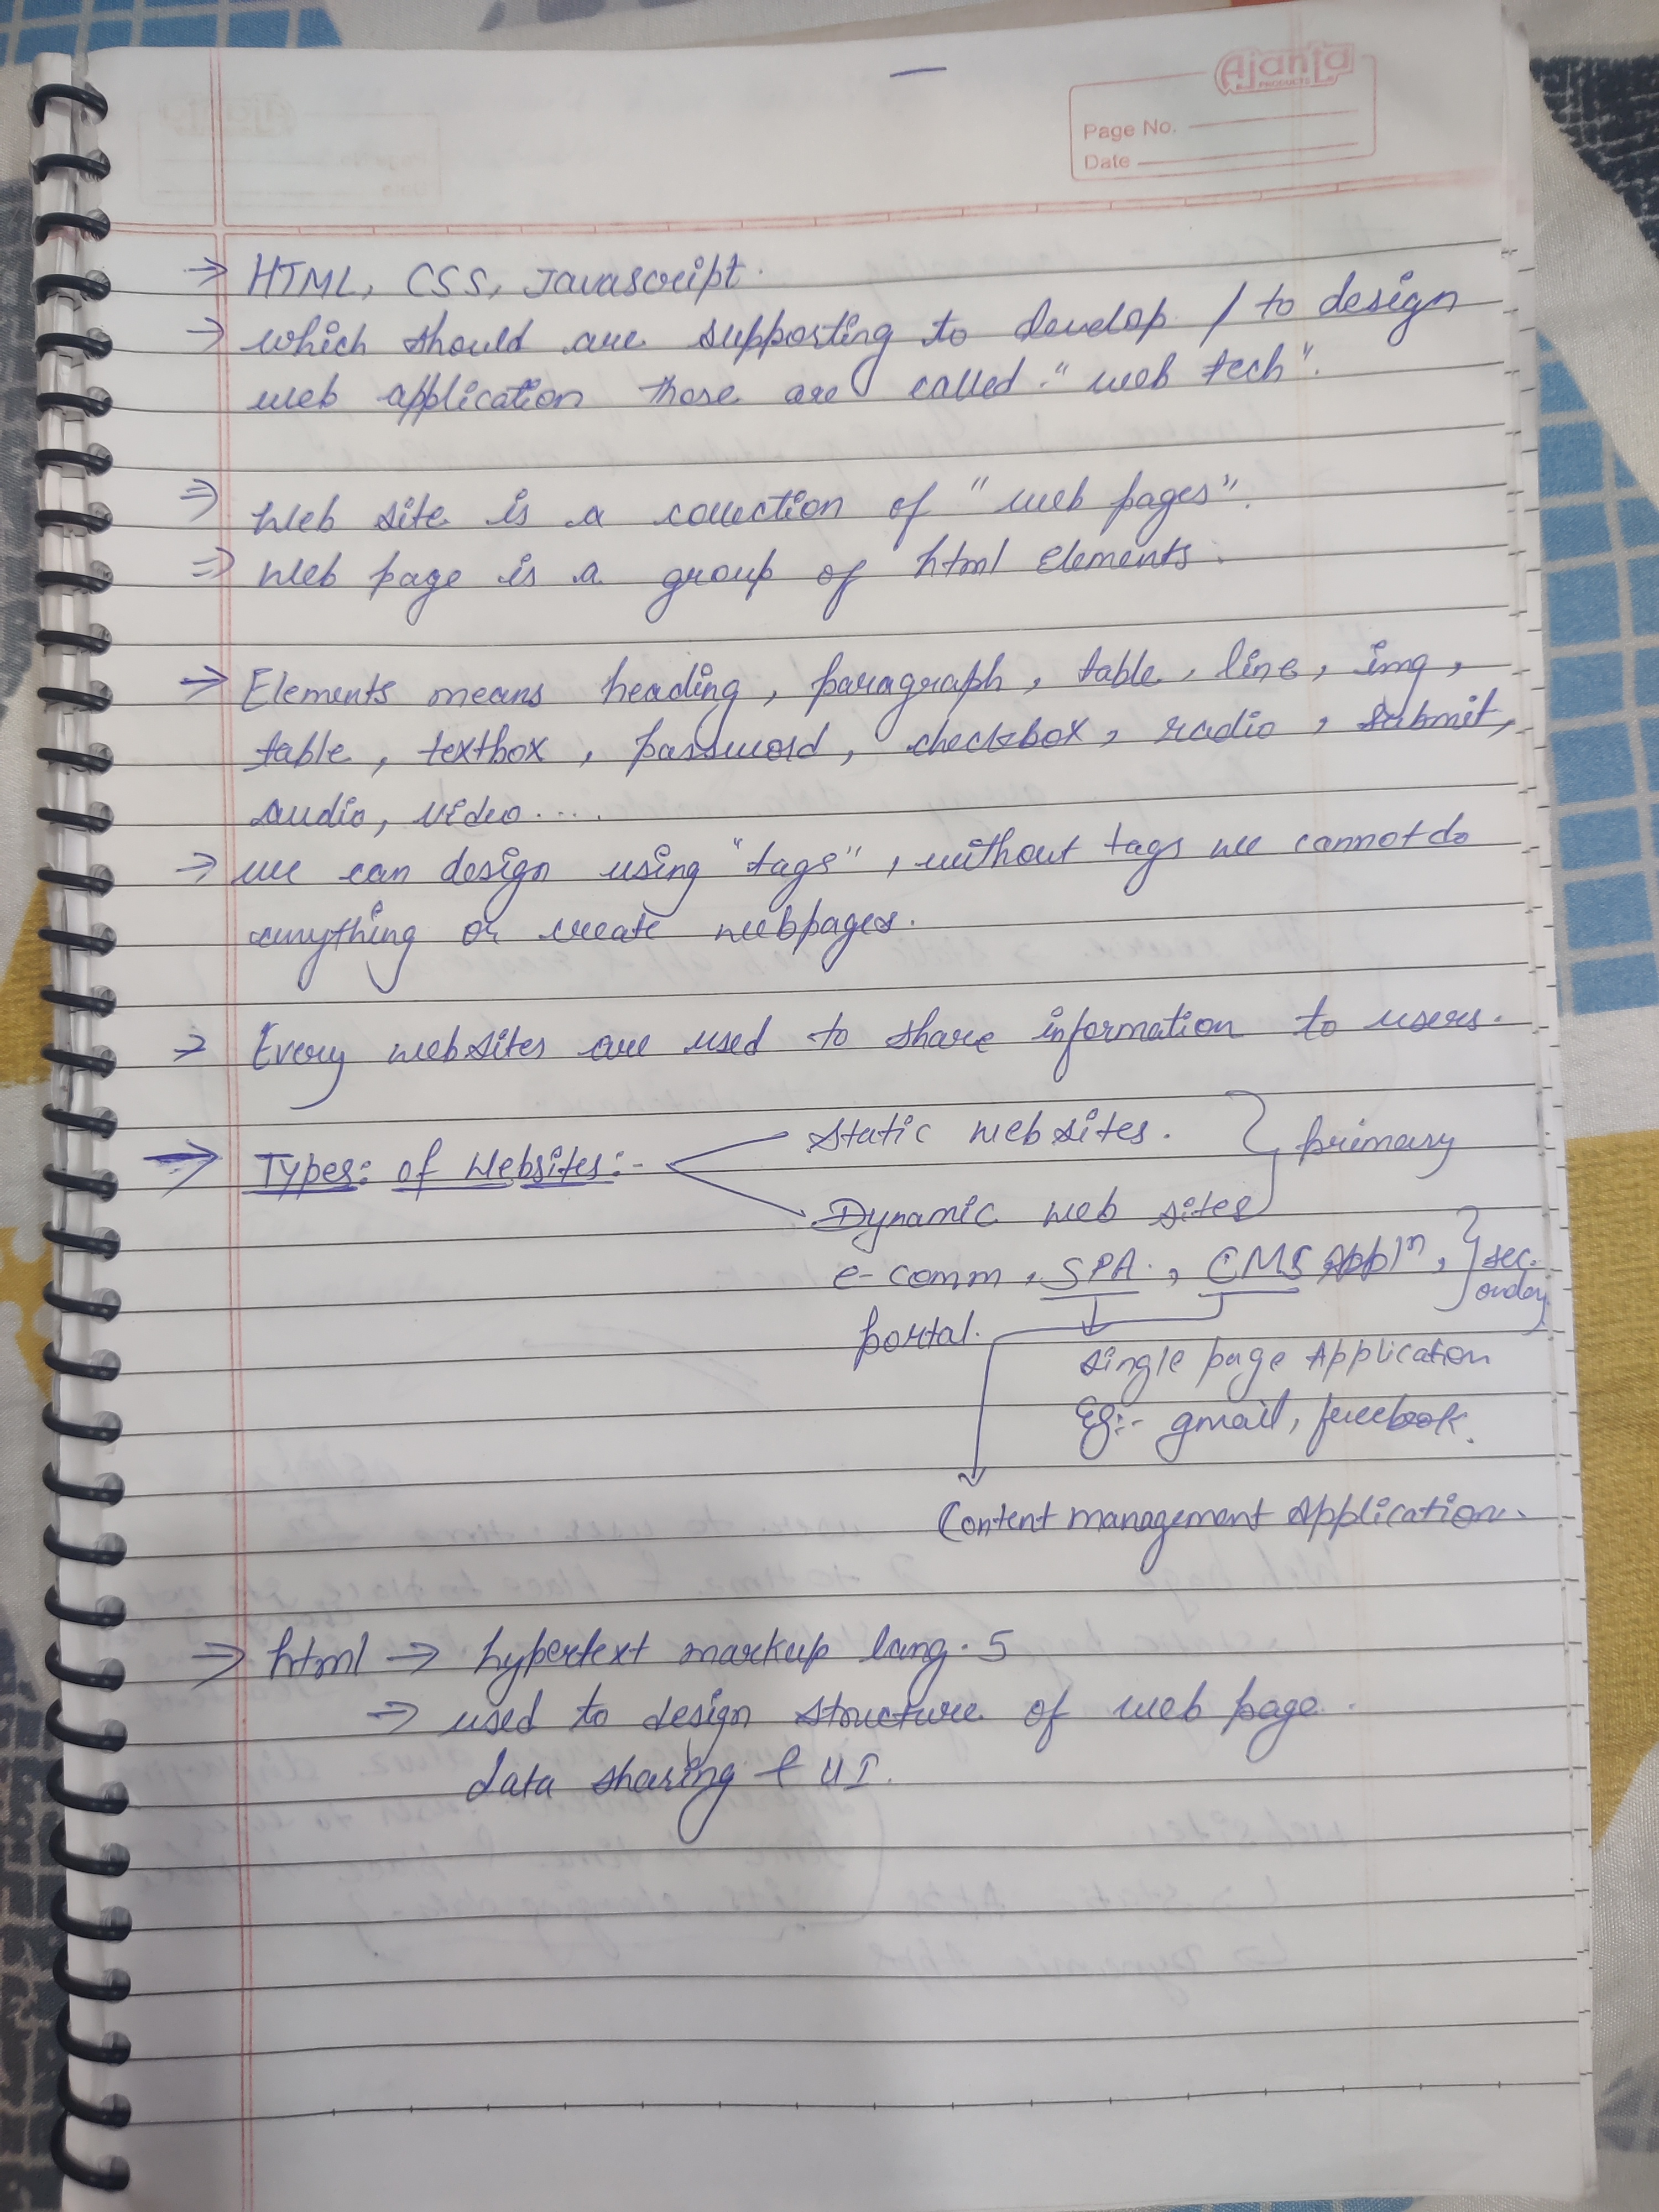 Ajanta
PRODUCTS
Page No.
Date
→ HTML, CSS, Javascript.
→ which should are supporting to develop / to design
web application those are called "web tech".
⇒ Web site is a collection of "web pages".
⇒ Web page is a group of html elements.
→ Elements means heading, paragraph, table, line, img,
table, textbox, password, checkbox, radio, submit,
audio, video....
→ we can design using "tags", without tags we cannot do
anything or create webpages.
→ Every websites are used to share information to users.
→ Types: of Websites:- Static websites. } primary
Dynamic web sites
e-comm, SPA., CMS Appl^n, } sec-
portal. ondary
Single page Application
Eg:- gmail, facebook.
Content management Application.
⇒ html → hypertext markup lang. 5
⇒ used to design structure of web page.
data sharing & UI.